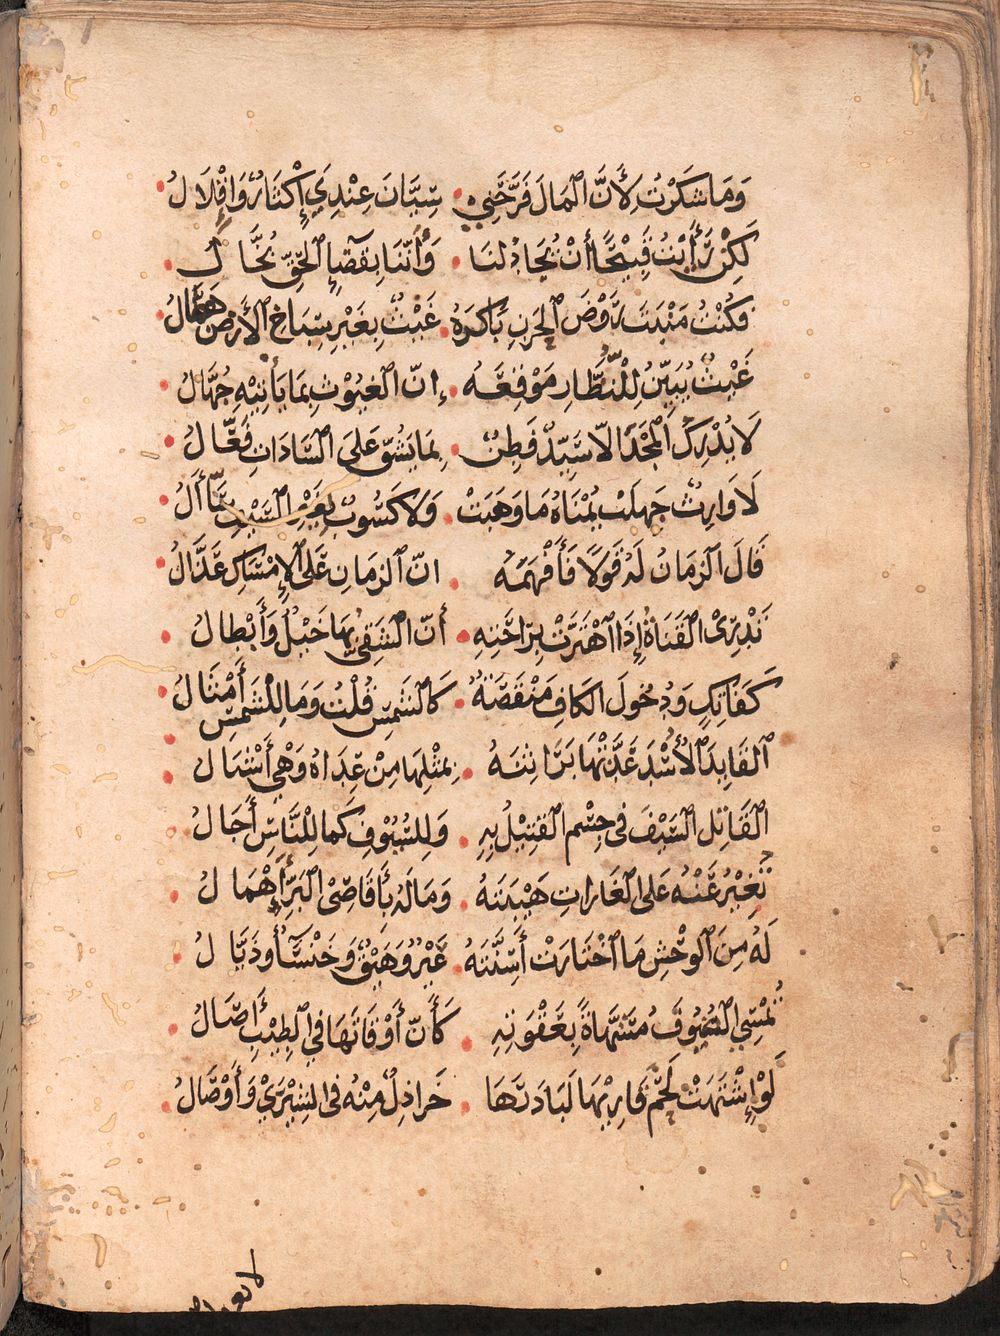 وَمَا شَكَرْتُ لِأَنَّ الْمَالَ فَرَّحَنِي • سِيَّانَ عِنْدِي إِكْثَارٌ وَإِقْلَالُ •
لَكِنْ رَأَيْتُ قَبِيْحًا أَنْ يُجَادَ لَنَا • وَأَنَّنَا بِقَضَاءِ الْحَقِّ بُخَّالُ •
فَكُنْتُ مَنْبَتَ رَوْضِ الْحَزْنِ بَاكَرَهُ • غَيْثٌ بِغَيْرِ سِبَاخِ الْأَرْضِ هَطَّالُ •
غَيْثٌ يُبَيِّنُ لِلنُّظَّارِ مَوْقِعَهُ • إِنَّ الْغُيُوْثَ بِمَا يَأْتِيْهِ جُهَّالُ •
لَا يُدْرِكُ الْمَجْدَ الَّا سَيِّدٌ فَطِنٌ • بِمَا يَشُقُّ عَلَى السَّادَاتِ فَعَّالُ •
لَا وَارِثٌ جَهِلَتْ يُمْنَاهُ مَا وَهَبَتْ • وَلَا كَسُوبٌ بِغَيْرِ السَّيْفِ سَأَّالُ •
قَالَ الزَّمَانُ لَهُ قَوْلًا فَأَفْهَمَهُ • انّ الزمَانَ عَلَى الْإِمْسَاكِ عَذَّالُ •
تَدْرِى الْقَنَاةُ إِذَا اهْتَزَّتْ بِرَاحَتِهِ • أَنّ الشَقِيَّ بِهَا خَيْلٌ وَأَبْطَالُ •
كَفَاتِكٍ وَدُخُولُ الكَافِ مَنْقَصَةٌ • كَالشَّمْسِ قُلْتُ وَمَا لِلشَّمْسِ أَمْثَالُ •
الْقَايِدَ الْأُسْدَ غَذَّتْهَا بَرَاثِنُهُ • بِمِثْلِهَا مِنْ عِدَاهُ وَهْيَ أَشْبَالُ •
الْقَاتِلِ السَّيْفَ فى جِسْمِ الْقَتِيْلِ بِهِ • وَلِلسُّيُوْفِ كَمَا لِلنَّاسِ أَجَالُ •
تُغِيْرُ عَنْهُ عَلَى الْغَارَاتِ هَيْبَتُهُ • وَمَا لَهُ بِأَقَاصِى الْبَرِّ أَهْمَالُ •
لَهُ مِنَ الْوَحْشِ مَا اخْتَارَتْ أَسِنَّتُهُ • عَيْرٌ وَهَيْقٌ وَخَنْسَآءُ وَذَيَّالُ •
تُمْسِي الضُّيُوْفُ مُشَهَّاةً بِعَقْوَتِهِ • كَأَنّ أَوْقَاتَهَا فِي الطِّيْبِ أَصَالُ •
لَوْ إِشْتَهَتْ لَحْمَ قَارِيْهَا لَبَادَرَهَا • خَرَادِلٌ مِنْهُ فى الشِيْزَىْ وَأَوْصَالُ •